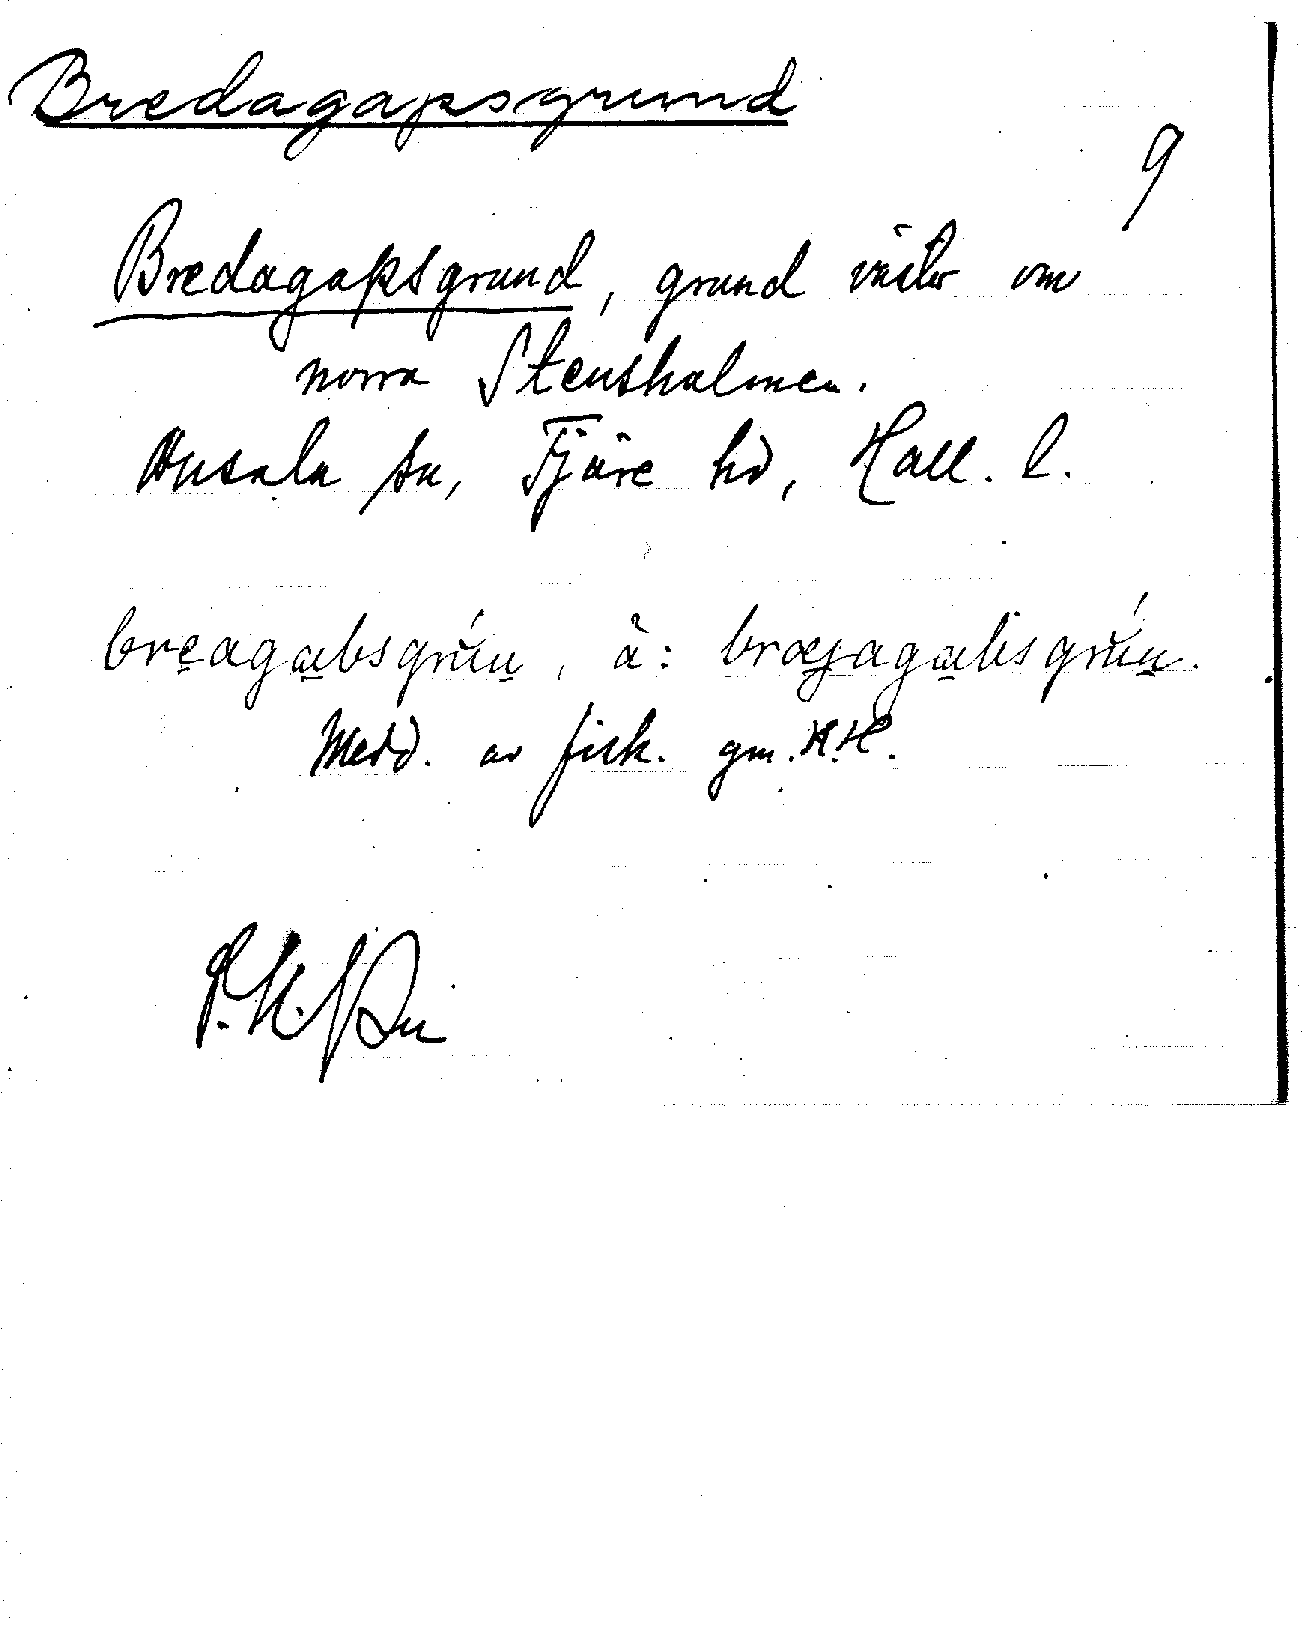 Bredagapsgrund
9
Bredagapsgrund, grund väster om
norra Stensholmen.
Onsala sn, Fjäre hd, Hall. l.
Medd. av fisk. gm. H.H.